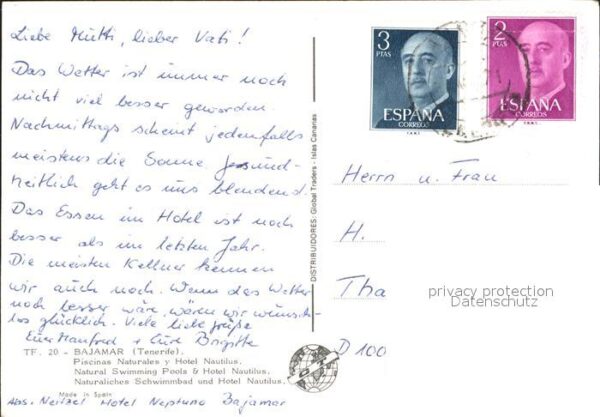 Liebe Mutti, lieber Vati!
Das Wetter ist immer noch
nicht viel besser geworden.
Nachmittags scheint jedenfalls
meistens die Sonne. Gesund-
heitlich geht es uns blendend.
Das Essen im Hotel ist noch
besser als im letzten Jahr.
Die meisten Kellner kennen
wir auch noch. Wenn das Wetter
noch besser wäre, wären wir wunsch-
los glücklich. Viele liebe Grüße
Eure Manfred + Eure Brigitte
TF. 20 - BAJAMAR (Tenerife).
Piscinas Naturales y Hotel Nautilus.
Natural Swimming Pools & Hotel Nautilus.
Naturaliches Schwimmbad und Hotel Nautilus.
Made in Spain
Abs. Neitzel Hotel Neptuno Bajamar
DISTRIBUIDORES: Global Traders - Islas Canarias
3
PTAS
ESPAÑA
CORREOS
2
PTAS
ESPAÑA
CORREOS
Herrn u. Frau
H.
Tha
D 100
privacy protection
Datenschutz